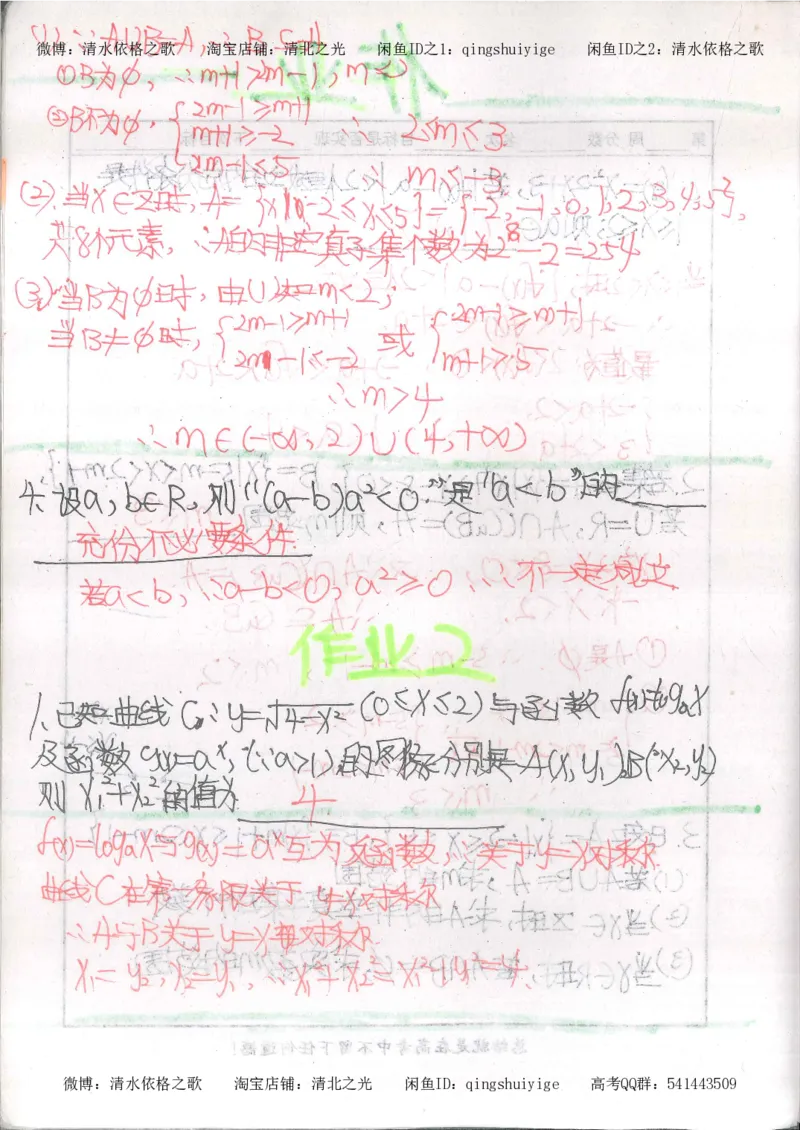 (1) ∵A∪B=A, ∴B⊆A
微博：清水依格之歌 淘宝店铺：清北之光 闲鱼ID之1：qingshuiyige 闲鱼ID之2：清水依格之歌
①B为∅, ∴m+1>2m-1, m<2
②B不为∅, {2m-1≥m+1
m+1≥-2 ∴ 2≤m≤3
2m-1≤5 ∴ m≤3
(2). 当x∈Z时, A={x|-2≤x≤5}={-2,-1,0,1,2,3,4,5},
共8个元素, ∴A的非空真子集个数为2⁸-2=254
(3) 当B为∅时, 由(1)知m<2;
当B≠∅时, {2m-1≥m+1 或 {2m-1≥m+1
2m-1<-2 m+1>5
∴m>4
∴m∈(-∞,2)∪(4,+∞)
4. 设a,b∈R, 则“(a-b)a²<0”是“a<b”的
充份不必要条件
若a<b, ∵a-b<0, a²≥0 ∴不一定成立
作业2
1. 已知曲线C: y=√4-x² (0≤x≤2)与函数 f(x)=logₐx
及函数g(x)=aˣ, (a>1)的图像分别是A(x₁,y₁),B(x₂,y₂)
则 x₁²+x₂²的值为 4
f(x)=logₐx与g(x)=aˣ互为反函数, ∴关于y=x对称
曲线C在第一象限关于y=x对称
∴A与B关于y=x对称
x₁=y₂, x₂=y₁, ∴x₁²+x₂²=x₁²+y₁²=4.
微博：清水依格之歌 淘宝店铺：清北之光 闲鱼ID：qingshuiyige 高考QQ群：541443509